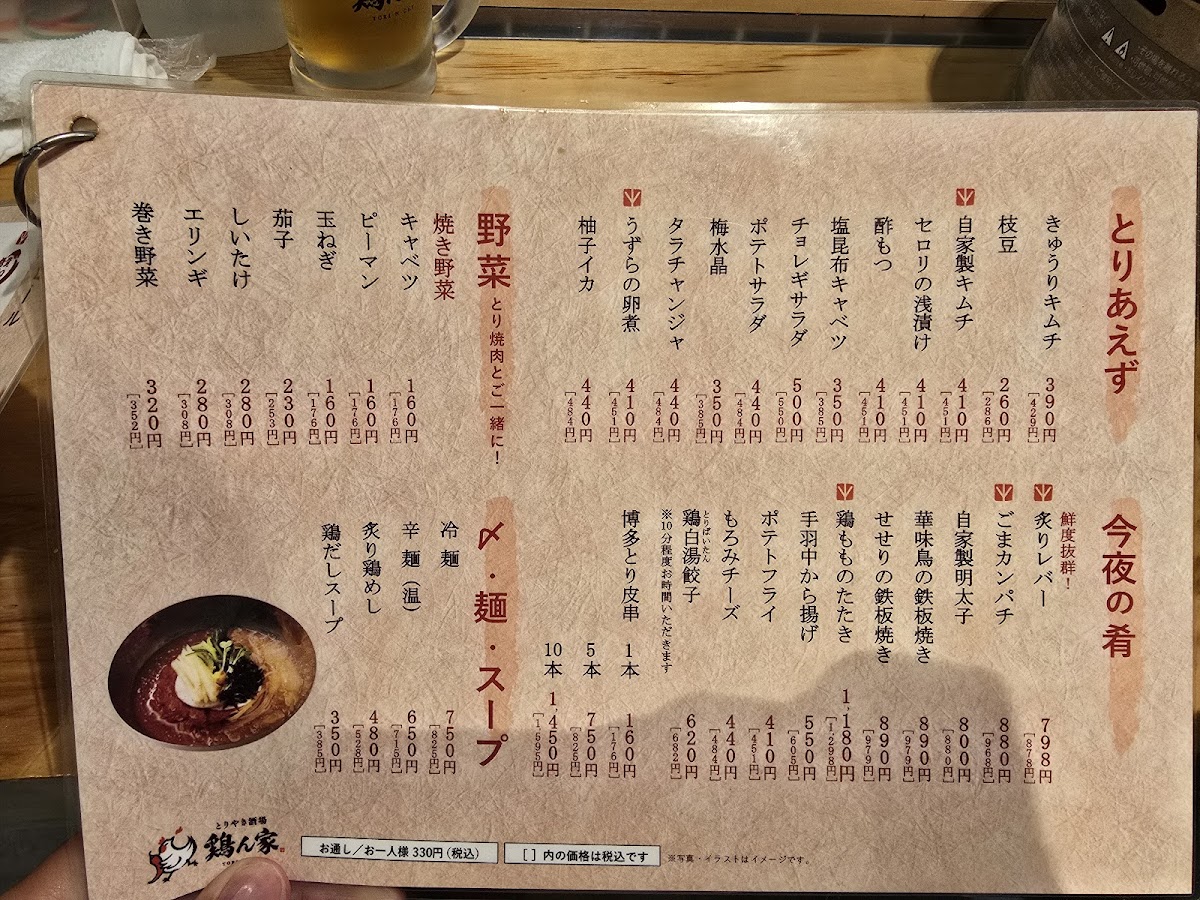 とりあえず
きゅうりキムチ 390円 [429円]
枝豆 260円 [286円]
自家製キムチ 410円 [451円]
セロリの浅漬け 410円 [451円]
酢もつ 410円 [451円]
塩昆布キャベツ 350円 [385円]
チョレギサラダ 500円 [550円]
ポテトサラダ 440円 [484円]
梅水晶 350円 [385円]
タラチャンジャ 440円 [484円]
うずらの卵煮 410円 [451円]
柚子イカ 440円 [484円]
野菜 とり焼肉とご一緒に！
焼き野菜
キャベツ 160円 [176円]
ピーマン 160円 [176円]
玉ねぎ 160円 [176円]
茄子 230円 [253円]
しいたけ 280円 [308円]
エリンギ 280円 [308円]
巻き野菜 320円 [352円]
今夜の肴
鮮度抜群！
炙りレバー 798円 [878円]
ごまカンパチ 880円 [968円]
自家製明太子 800円 [880円]
華味鳥の鉄板焼き 890円 [979円]
せせりの鉄板焼き 890円 [979円]
鶏もものたたき 1,180円 [1,298円]
手羽中から揚げ 550円 [605円]
ポテトフライ 410円 [451円]
もろみチーズ 440円 [484円]
鶏白湯餃子 620円 [682円]
とりぱいたん
※10分程度お時間いただきます
博多とり皮串 1本 160円 [176円]
5本 750円 [825円]
10本 1,450円 [1,595円]
〆・麺・スープ
冷麺 750円 [825円]
辛麺（温） 650円 [715円]
炙り鶏めし 480円 [528円]
鶏だしスープ 350円 [385円]
とりやき酒場
鶏ん家
お通し／お一人様 330円（税込）
[ ] 内の価格は税込です
※写真・イラストはイメージです。